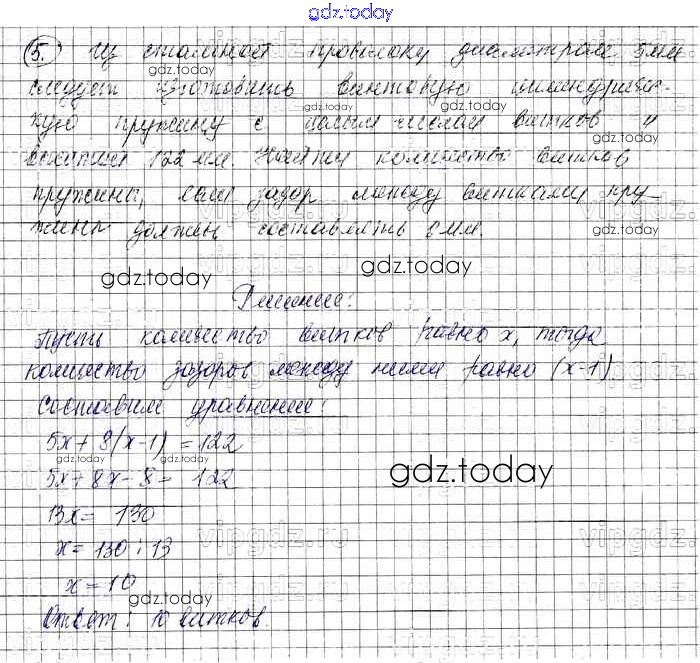 gdz.today
5. Из стальной проволоки диаметром 5 мм
gdz.today
следует изготовить винтовую цилиндричес-
gdz.today gdz.today
кую пружину с целым числом витков и
высотой 122 мм. Найти количество витков
пружины, если зазор между витками пру-
жины должен составлять 8 мм.
gdz.today gdz.today
Решение:
Пусть количество витков равно x, тогда
количество зазоров между ними равно (x-1).
Составим уравнение:
5x + 8(x-1) = 122
gdz.today gdz.today
gdz.today
5x + 8x - 8 = 122
13x = 130
vipgdz.ru
x = 130 : 13
x = 10
gdz.today
Ответ: 10 витков.